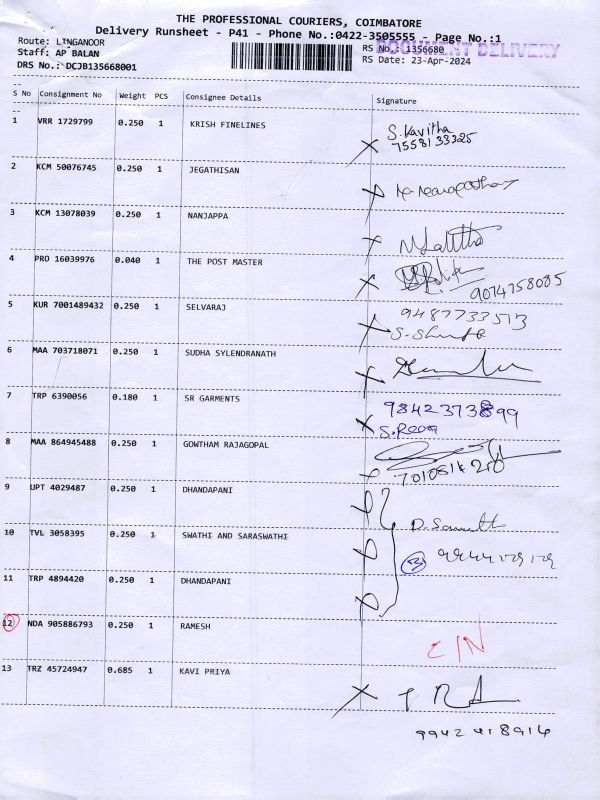 THE PROFESSIONAL COURIERS, COIMBATORE
Delivery Runsheet - P41 - Phone No.:0422-3505555 - Page No.:1
Route: LINGANOOR
Staff: AP BALAN
DRS No.: DCJB135668001
RS No.: 1356680
DOCUMENT DELIVERY
RS Date: 23-Apr-2024
S No Consignment No Weight PCS Consignee Details Signature
1 VRR 1729799 0.250 1 KRISH FINELINES S.Kavitha
7558133325
2 KCM 50076745 0.250 1 JEGATHISAN
3 KCM 13078039 0.250 1 NANJAPPA
4 PRO 16039976 0.040 1 THE POST MASTER
9074758085
5 KUR 7001489432 0.250 1 SELVARAJ 9487733513
6 MAA 703718071 0.250 1 SUDHA SYLENDRANATH
7 TRP 6390056 0.180 1 SR GARMENTS 9842373899
8 MAA 864945488 0.250 1 GOWTHAM RAJAGOPAL
9 UPT 4029487 0.250 1 DHANDAPANI
10 TVL 3058395 0.250 1 SWATHI AND SARASWATHI
11 TRP 4894420 0.250 1 DHANDAPANI
12 NDA 905886793 0.250 1 RAMESH C/N
13 TRZ 45724947 0.685 1 KAVI PRIYA
9942418914